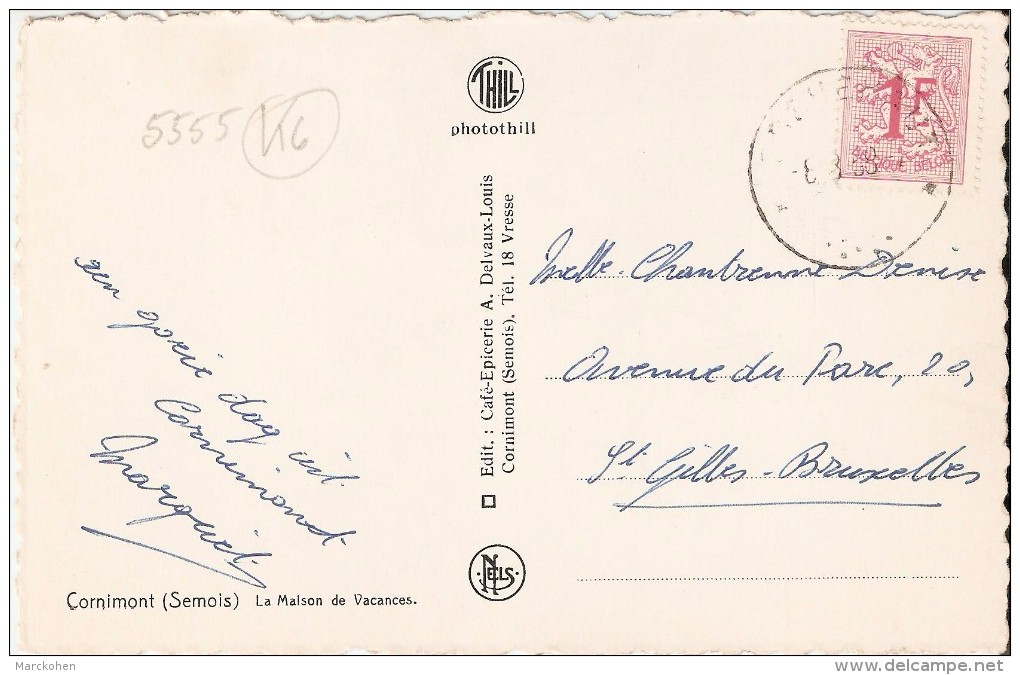 THILL
photothill
5555 K6
1F
BELGIQUE BELGIE
Edit. : Café-Epicerie A. Delvaux-Louis
Cornimont (Semois). Tél. 18 Vresse
Melle. Chantrenne Denise
Avenue du Parc, 20,
St Gilles-Bruxelles
een goeie dag uit
Cornimont
Marguit
NELS
Cornimont (Semois) La Maison de Vacances.
Marckohen
www.delcampe.net